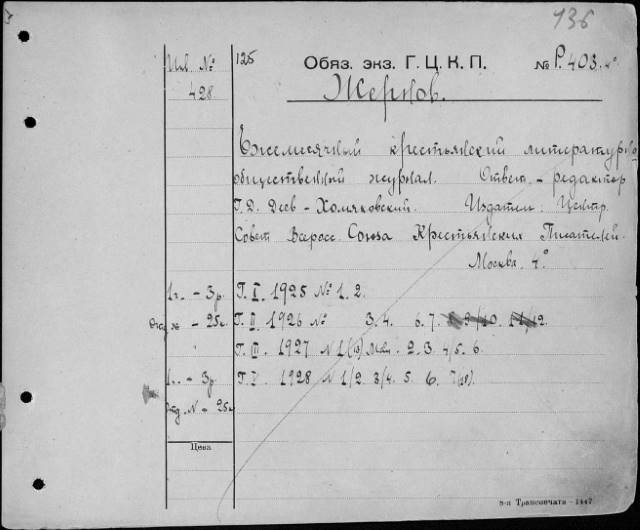 136
Инв. № 125 Обяз. экз. Г. Ц. К. П. № Р. 403. 4°
428. Жернов.
Ежемесячный крестьянский литературно
общественный журнал. Ответ - редактор
Г. Д. Деев - Хомяковский. Издатель: Центр.
Совет Всеросс. Союза Крестьянских Писателей.
Москва. 4°
1 г. - 3 р. Г. I. 1925 № 1. 2.
- 25 к. Г. II. 1926 № 3. 4. 6. 7. 8 9/10. 11/12.
Г. III. 1927 N 1 2. 3. 4/5. 6.
1 г. - 3 р. Г. V 1928 N 1/2. 3/4. 5. 6. 7
Отд. N - 25 к
Цена
5-я Транспечать - 1447